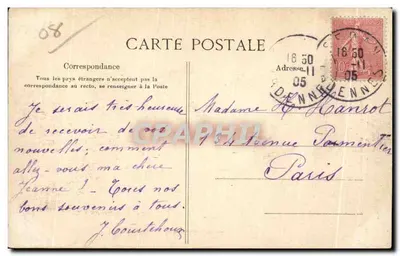 08
CARTE POSTALE
Correspondance
Tous les pays étrangers n'acceptent pas la
correspondance au recto, se renseigner à la Poste
Je serais très heureuse
de recevoir de vos
nouvelles; comment
allez-vous ma chère
Jeanne ? - Tous nos
bons souvenirs à tous.
J. Courtehoux
Adresse
Madame H Hanrot
Avenue Parmentier
Paris
18 30
11
05
ARDENNES
18 30
11
05
ARDENNES
CPA